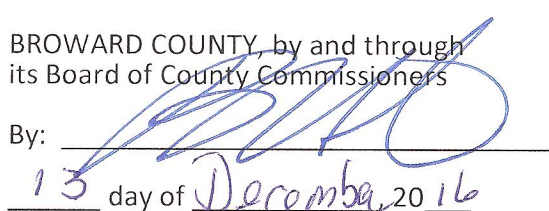 BROWARD COUNTY, by and through
its Board of County Commissioners
By:
13 day of December, 2016